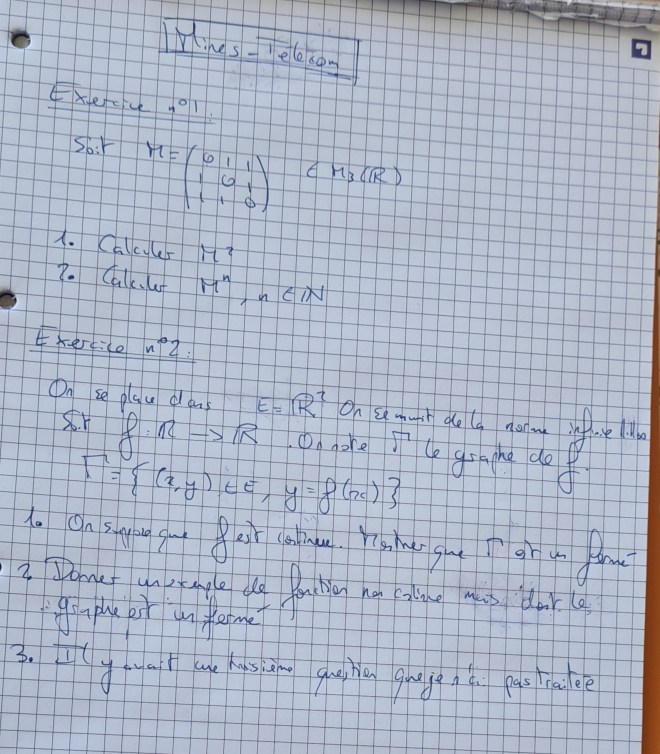 Mines-Telecom
Exercice n°1:
Soit M = (0 1 1
1 0 1
1 1 0) ∈ M3(R)
1. Calculer M²
2. Calculer Mⁿ, n ∈ IN
Exercice n°2:
On se place dans E = R² On se munit de la norme infinie ||.||∞
Soit f: R → R. On note Γ le graphe de f.
Γ = { (x,y) ∈ E, y = f(x) }
1. On suppose que f est continue. Montrer que Γ est un fermé
2. Donner un exemple de fonction non continue mais dont le
graphe est un fermé
3. Il y avait une troisième question que je n'ai pas traitée